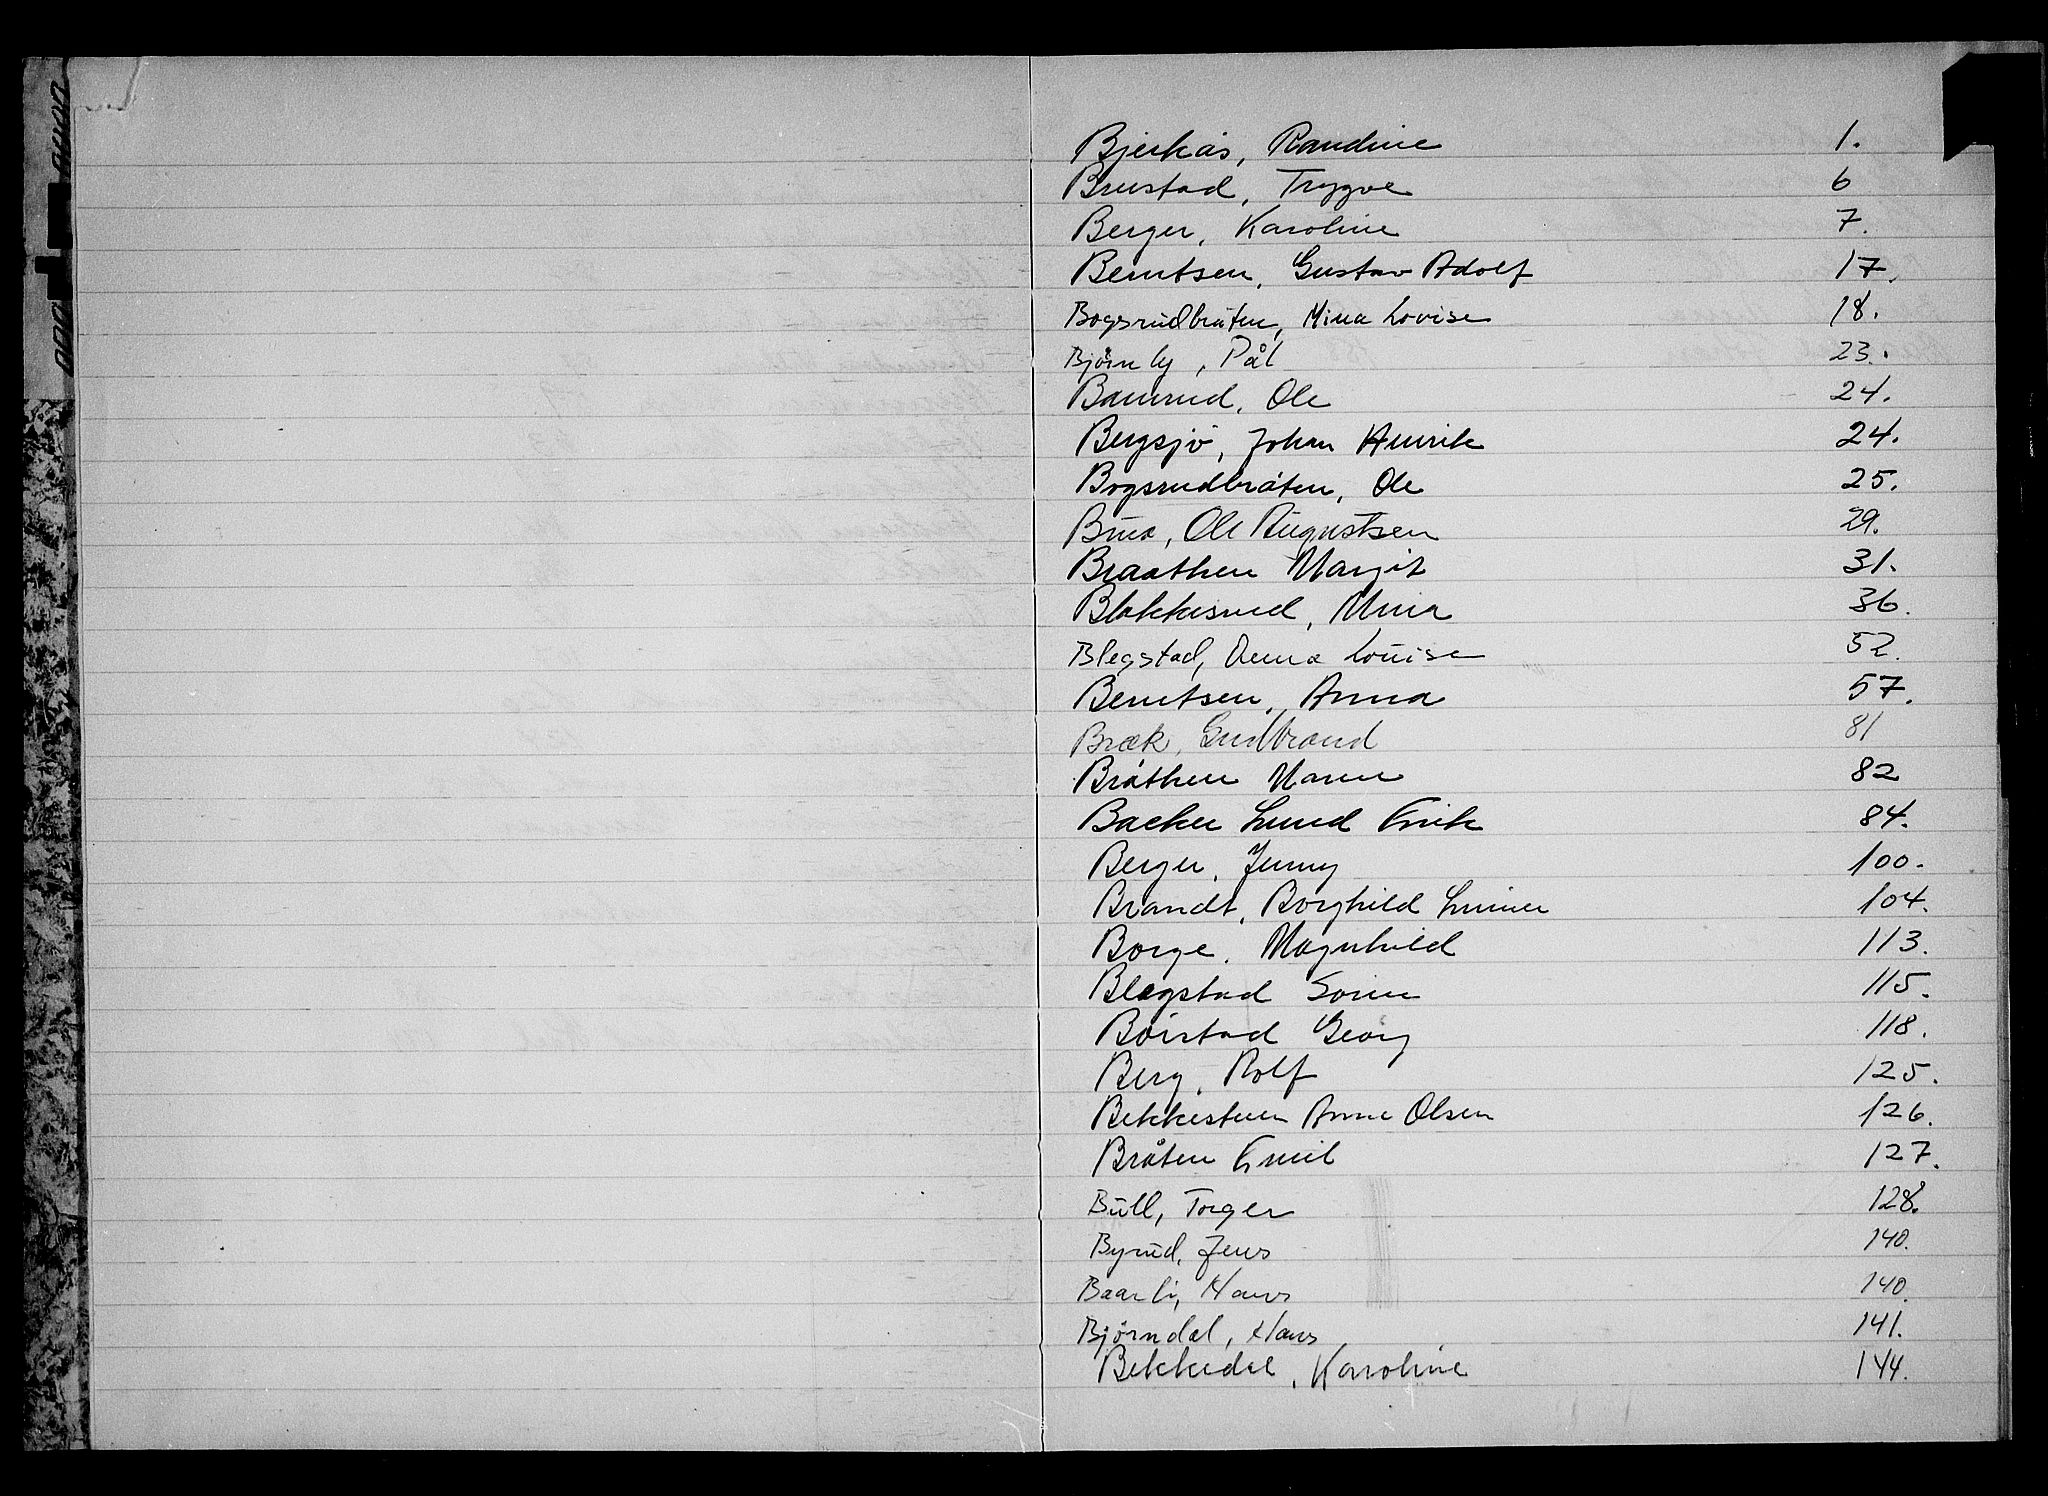 Bjerkås, Randine 1.
Brustad, Trygve 6
Berger, Karoline 7.
Berntsen, Gustav Adolf 17.
Bogsrudbråten, Mina Lovise 18.
Bjørnly, Pål 23.
Baurud, Ole 24.
Bergsjø, Johan Henrik 24.
Bogsrudbråten, Ole 25.
Brua, Ole Augustsen 29.
Braathen Margit 31.
Blakkisrud, Mina 36.
Blegstad, Anna Louise 52.
Berntsen, Anna 57.
Bræk, Gudbrand 81
Bråthen Maren 82
Backer Lund Erik 84.
Berger, Jenny 100.
Brandt, Borghild 104.
Borge, Magnhild 113.
Blegstad Sorine 115.
Børstad Georg 118.
Berg, Rolf 125.
Bekkestuen Anne Olsen 126.
Bråten Emil 127.
Bull, Torger 128.
Byrud, Jens 140.
Baarli, Hans 140.
Bjørndal, Hans 141.
Bekkedal, Karoline 144.